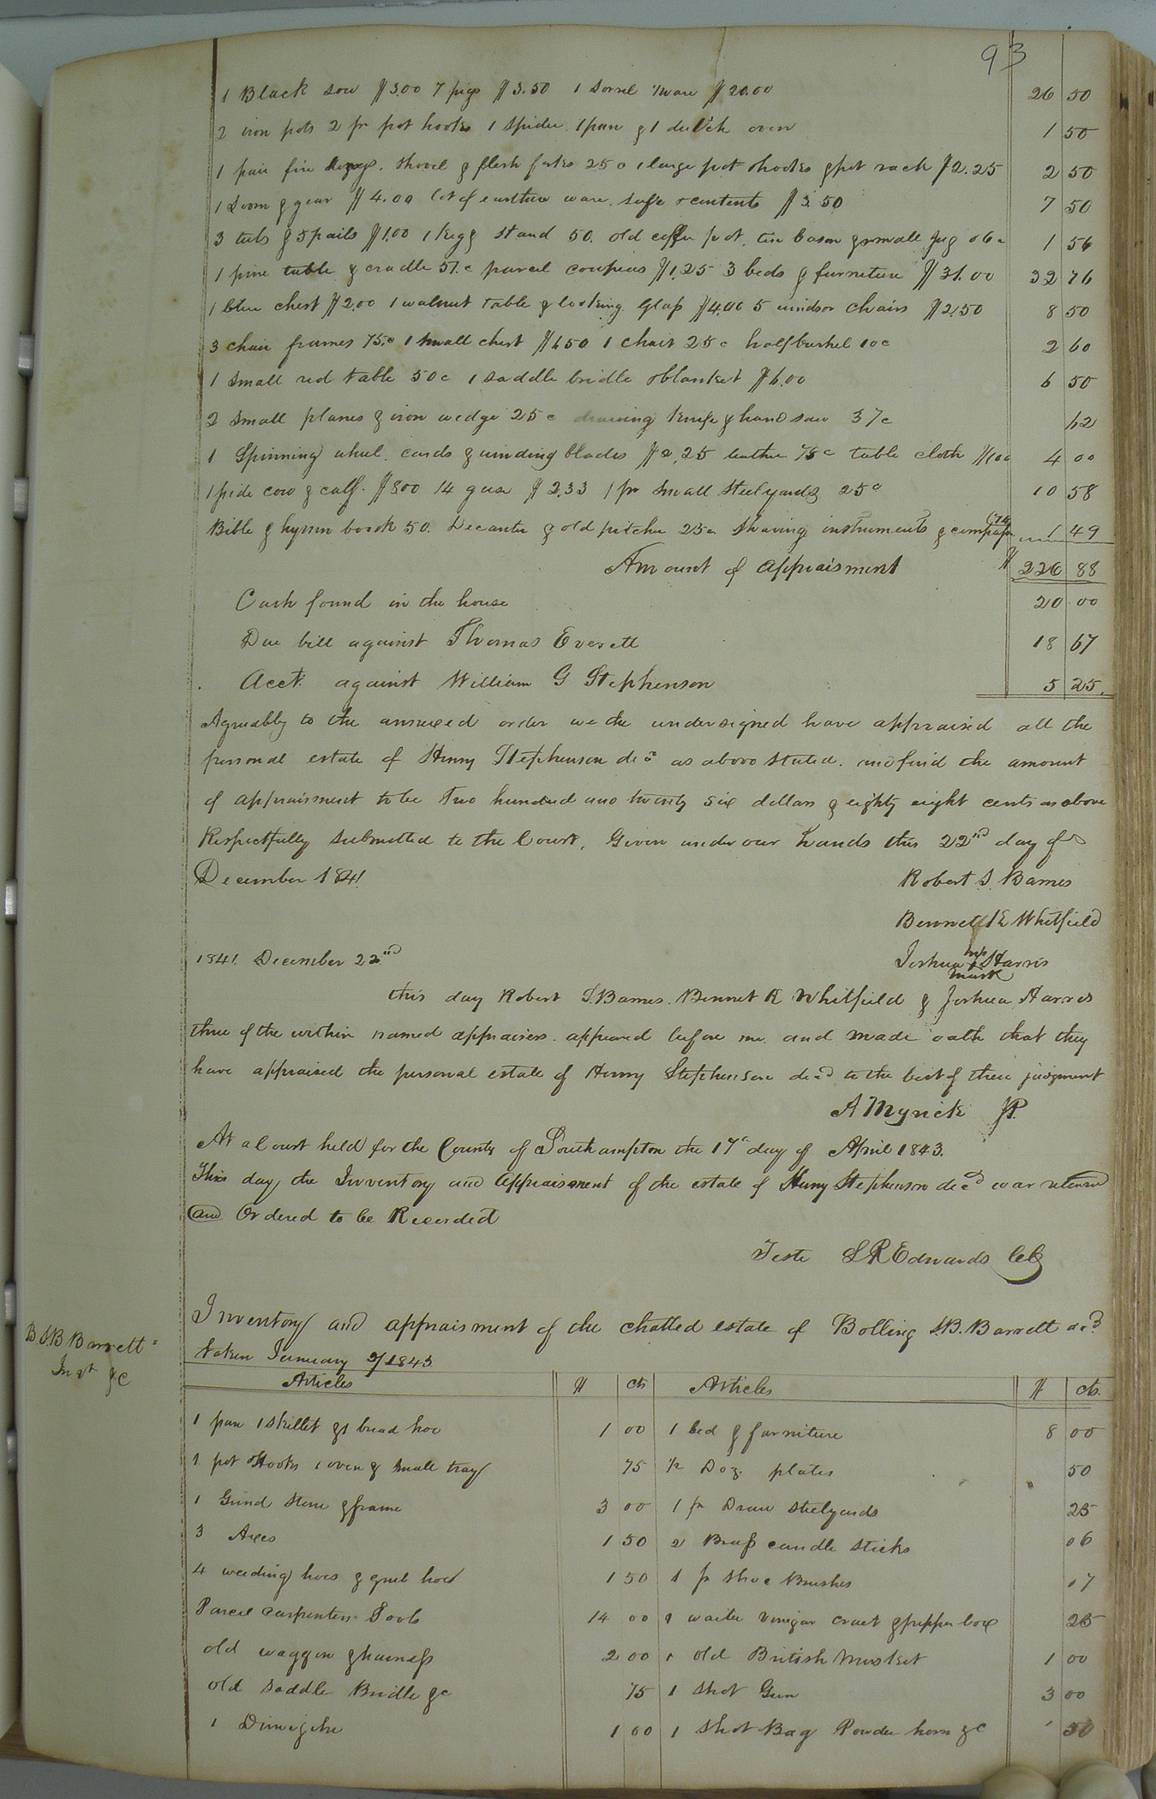 93
1 Black sow $3.00 7 pigs $3.50 1 Sorrel Mare $20.00 26 50
2 iron pots 2 pr pot hooks 1 spider 1 pan & 1 dutch oven 1 50
1 pair fire shovel & flesh forks 25c 1 large pot hooks & pot rack $2.25 2 50
1 Loom & gear $4.00 lot of earthen ware, safe & contents $3.50 7 50
3 tubs & 5 pails $1.00 1 keg & stand 50. old coffee pot, tin bason & small jug 06c 1 56
1 pine table & cradle 51c parcel $1.25 3 beds & furniture $31.00 32 76
1 blue chest $2.00 1 walnut table & looking glass $4.00 5 windsor chairs $2.50 8 50
3 chair frames 75c 1 small chest $1.50 1 chest 25c half bushel 10c 2 60
1 small red table 50c 1 saddle bridle & blanket $6.00 6 50
2 small planes & iron wedge 25c drawing knife & hand saw 37c 62
1 Spinning wheel. cards & winding blades $2.25 leather 75c table cloth $1.00 4 00
1 pide cow & calf. $8.00 14 geese $2.33 1 pr small steelyards 25c 10 58
Bible & hymn book 50. Decanter & old pitcher 25c shaving instruments & compass 1 49
Amount of appraisment $ 226 88
Cash found in the house 20.00
Due bill against Thomas Everett 18 67
Acct. against William G Stephenson 5 25.
Agreeably to the annexed order we the undersigned have appraised all the
personal estate of Henry Stephenson decd as above stated. and find the amount
of appraisment to be Two hundred and twenty six dollars & eighty eight cents as above
Respectfully submitted to the Court, Given under our hands this 22nd day of
December 1841. Robert S. Barnes
Bennett K Whitfield
1841. December 22nd Joshua his mark Harris
this day Robert S. Barnes. Bennet K Whitfield & Joshua Harris
three of the within named appraisers appeared before me and made oath that they
have appraised the personal estate of Henry Stephenson decd to the best of their judgment
A Myrick JP.
At a Court held for the County of Southampton the 17th day of April 1843.
This day the Inventory and Appraisment of the estate of Henry Stephenson decd was returned
and Ordered to be Recorded
Teste L R Edwards Clk
Inventory and appraisment of the chatted estate of Bolling S.B. Barrett decd
taken January 9/1843
B S B Barrett
Invt &c
Articles $ cts Articles $ cts.
1 pan 1 skillet & 1 broad hoe 1 00 1 bed & furniture 8 00
1 pot Hooks 1 oven & small tray 75 1/2 Doz. plates 50
1 Grind stone & frame 3 00 1 pr Draw steelyards 25
3 Axes 1 50 2 Brass candle sticks 06
4 weeding hoes & grub hoe 1 50 1 pr Shoe Brushes 17
Parcel Carpenters Tools 14 00 1 waiter vinigar cruet & pepper box 25
old waggon & harness 2 00 1 old British Musket 1 00
old saddle Bridle &c 75 1 Shot Gun 3 00
1 1 00 1 Shot Bag Powder horn &c 50